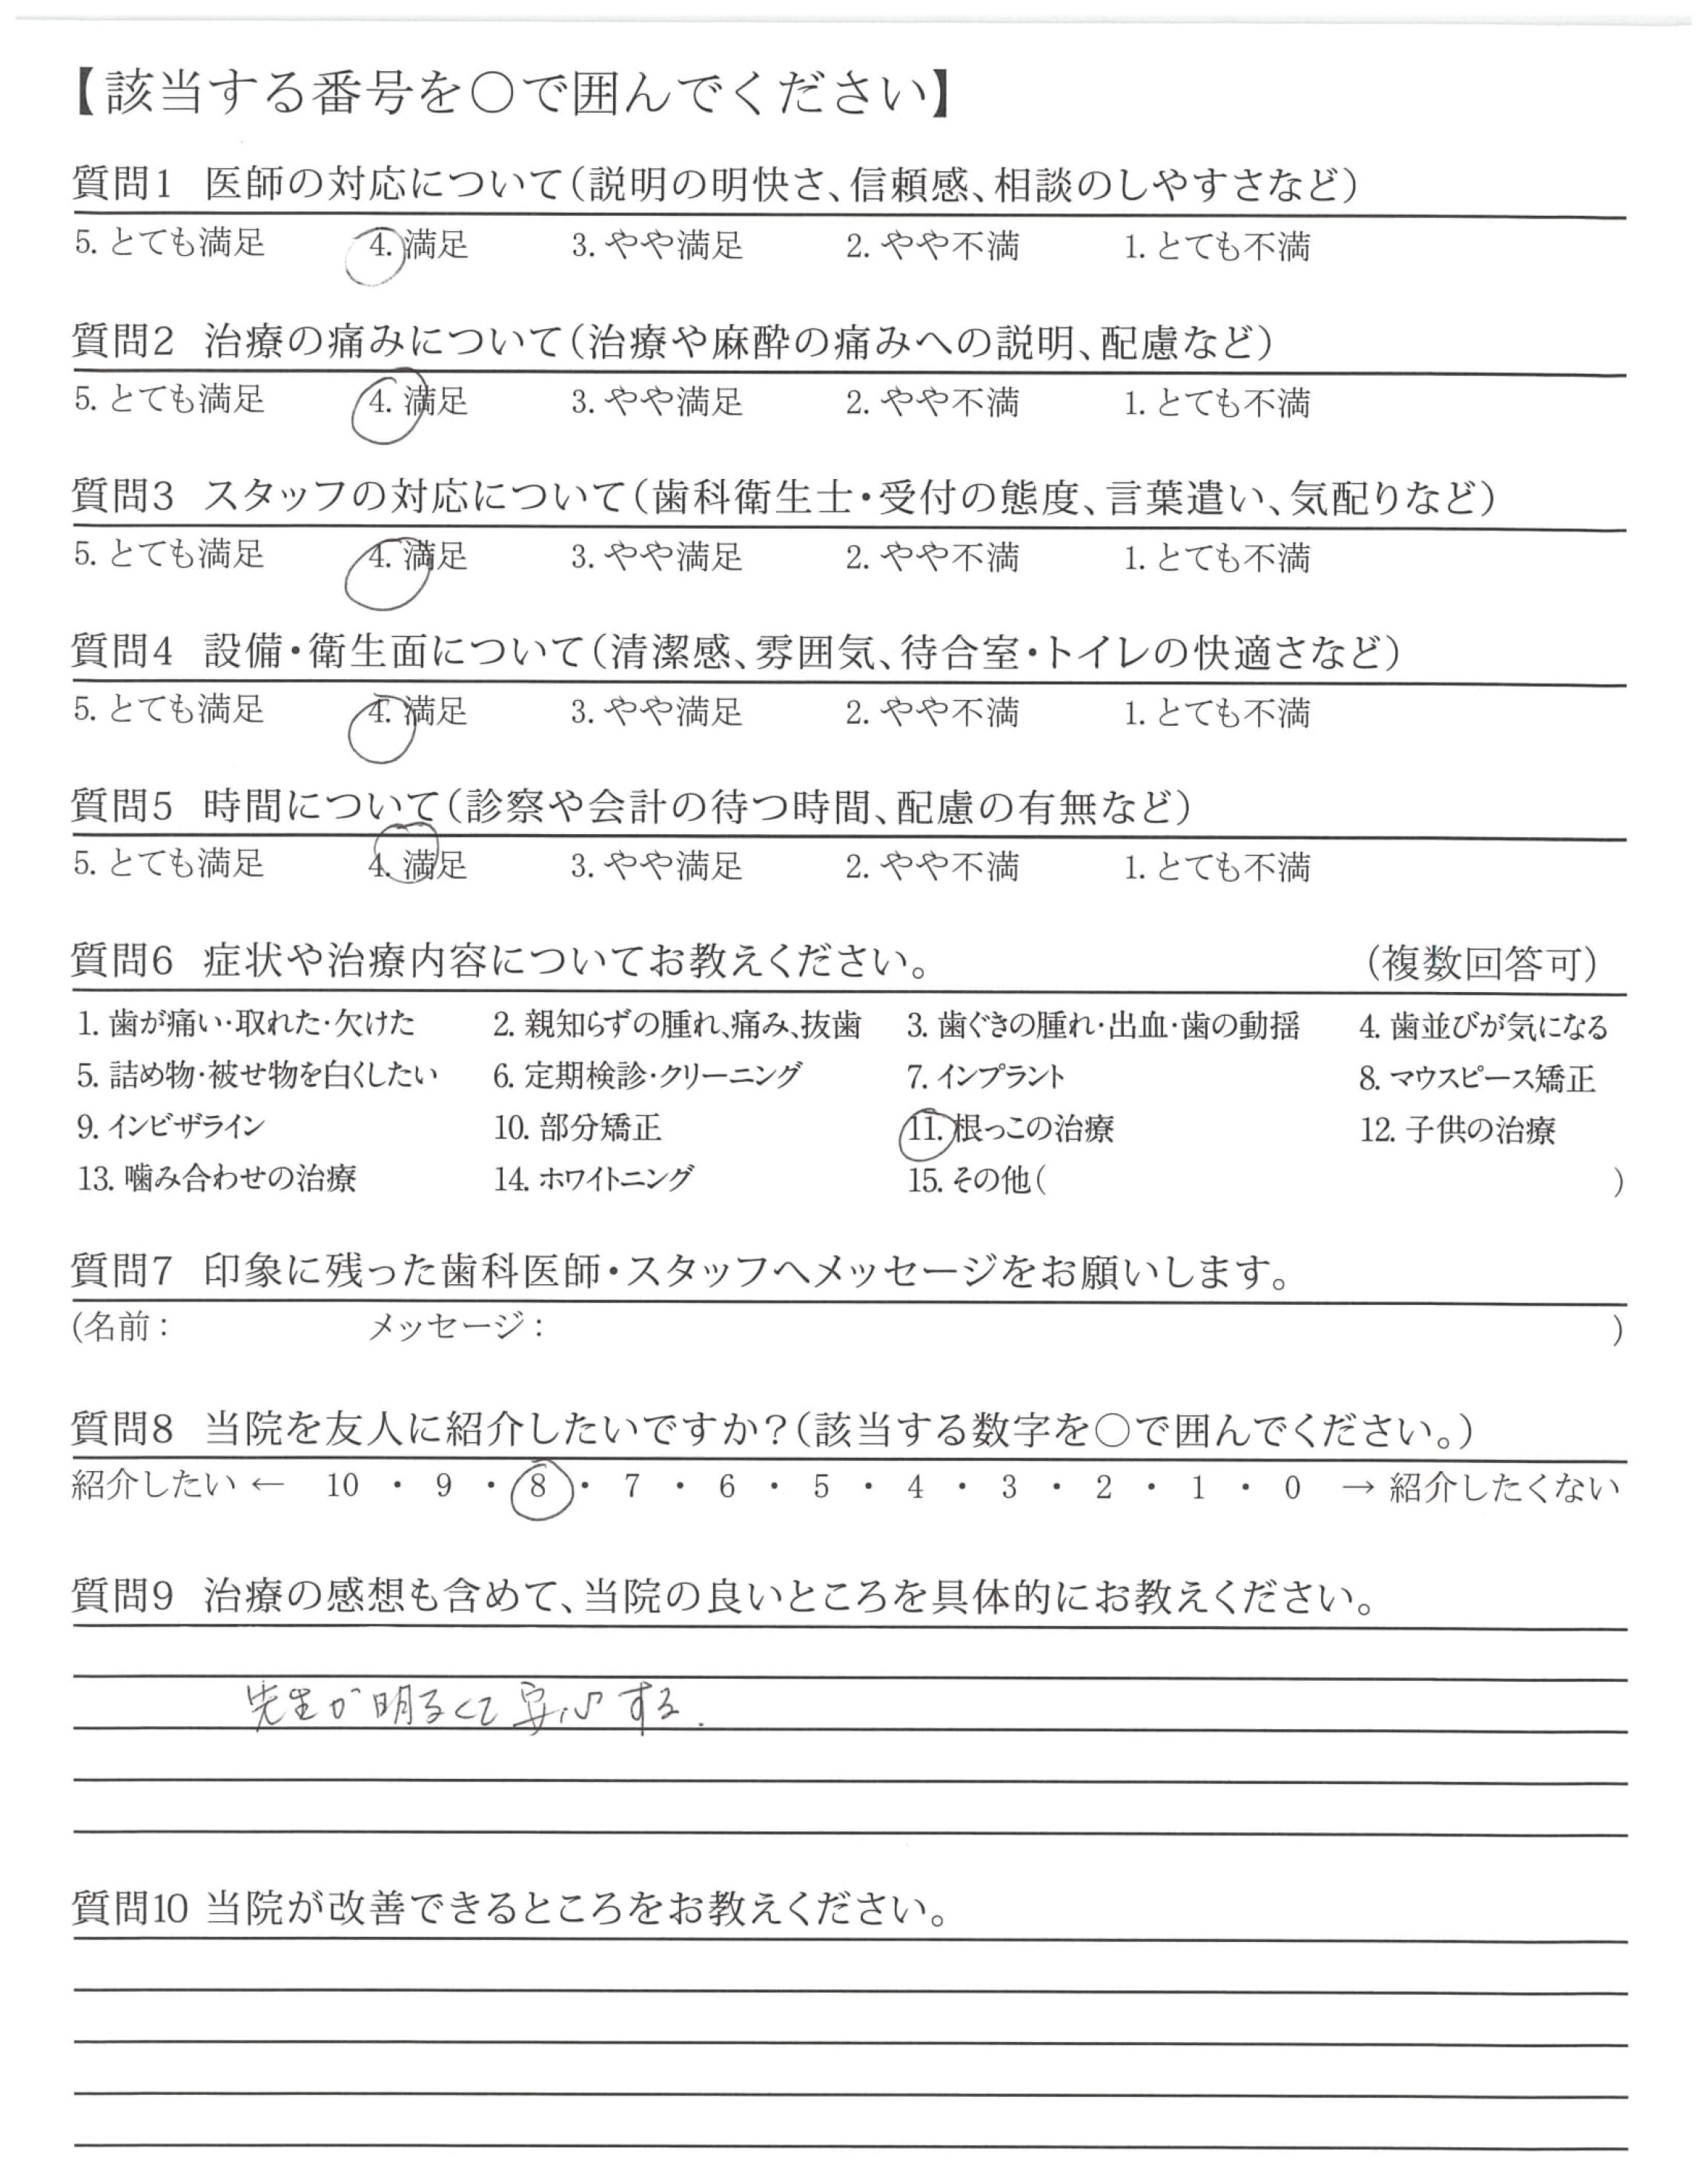 【該当する番号を○で囲んでください】
質問1 医師の対応について（説明の明快さ、信頼感、相談のしやすさなど）
5. とても満足 4. 満足 3. やや満足 2. やや不満 1. とても不満
質問2 治療の痛みについて（治療や麻酔の痛みへの説明、配慮など）
5. とても満足 4. 満足 3. やや満足 2. やや不満 1. とても不満
質問3 スタッフの対応について（歯科衛生士・受付の態度、言葉遣い、気配りなど）
5. とても満足 4. 満足 3. やや満足 2. やや不満 1. とても不満
質問4 設備・衛生面について（清潔感、雰囲気、待合室・トイレの快適さなど）
5. とても満足 4. 満足 3. やや満足 2. やや不満 1. とても不満
質問5 時間について（診察や会計の待つ時間、配慮の有無など）
5. とても満足 4. 満足 3. やや満足 2. やや不満 1. とても不満
質問6 症状や治療内容についてお教えください。 （複数回答可）
1. 歯が痛い・取れた・欠けた 2. 親知らずの腫れ、痛み、抜歯 3. 歯ぐきの腫れ・出血・歯の動揺 4. 歯並びが気になる
5. 詰め物・被せ物を白くしたい 6. 定期検診・クリーニング 7. インプラント 8. マウスピース矯正
9. インビザライン 10. 部分矯正 11. 根っこの治療 12. 子供の治療
13. 噛み合わせの治療 14. ホワイトニング 15. その他（ ）
質問7 印象に残った歯科医師・スタッフへメッセージをお願いします。
（名前： メッセージ： ）
質問8 当院を友人に紹介したいですか？（該当する数字を○で囲んでください。）
紹介したい ← 10 ・ 9 ・ 8 ・ 7 ・ 6 ・ 5 ・ 4 ・ 3 ・ 2 ・ 1 ・ 0 → 紹介したくない
質問9 治療の感想も含めて、当院の良いところを具体的にお教えください。
先生が明るくて安心する.
質問10 当院が改善できるところをお教えください。